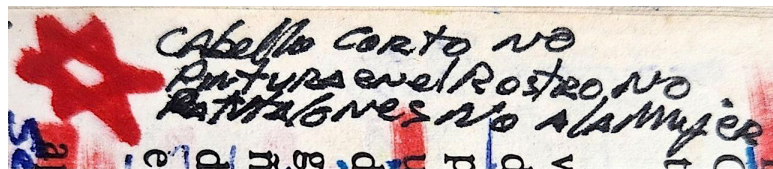 CAbello CORTO NO
PINTURA en el ROSTRO NO
PANTALONES NO A lA MUjeR